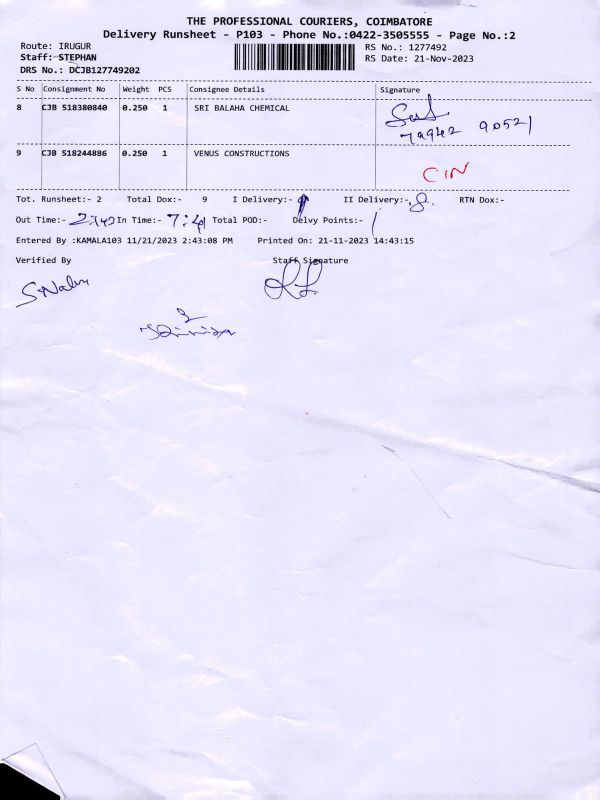 THE PROFESSIONAL COURIERS, COIMBATORE
Delivery Runsheet - P103 - Phone No.:0422-3505555 - Page No.:2
Route: IRUGUR RS No.: 1277492
Staff: STEPHAN RS Date: 21-Nov-2023
DRS No.: DCJB127749202
S No Consignment No Weight PCS Consignee Details Signature
8 CJB 518380840 0.250 1 SRI BALAHA CHEMICAL
79942 90521
9 CJB 518244886 0.250 1 VENUS CONSTRUCTIONS
CIN
Tot. Runsheet:- 2 Total Dox:- 9 I Delivery:- II Delivery:- 8 RTN Dox:-
Out Time:- In Time:- 7:41 Total POD:- Delvy Points:-
Entered By :KAMALA103 11/21/2023 2:43:08 PM Printed On: 21-11-2023 14:43:15
Verified By Staff Signature